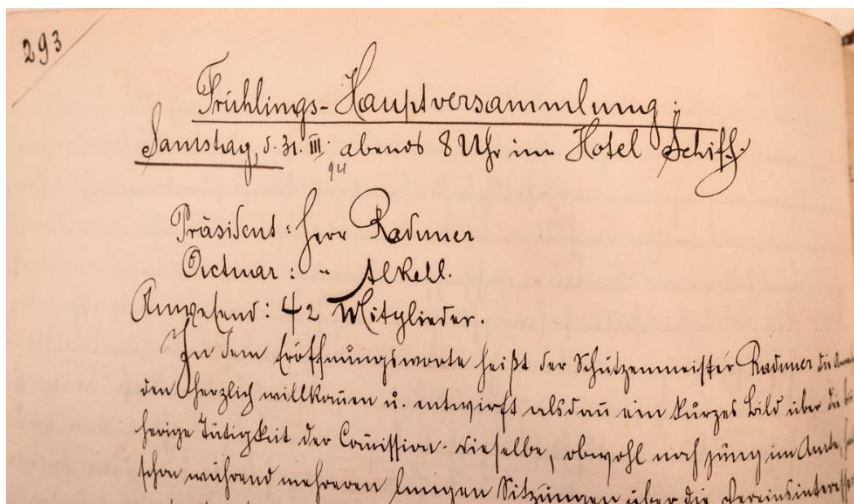 293
Frühlings-Hauptversammlung:
Samstag, d. 31. III. abends 8 Uhr im Hotel Schiff.
94
Präsident: Herr Raduner
Actuar: " Alkell.
Anwesend: 42 Mitglieder.
In dem Eröffnungsworte heißt der Schützenmeister Raduner die
den herzlich willkom̅en u. entwirft alsdan̅ ein kurzes Bild über die bis
herige Tätigkeit der Com̅ission. Dieselbe, obwohl noch jung im Amte,
schon während mehreren langen Sitzungen über die Vereinsinteressen